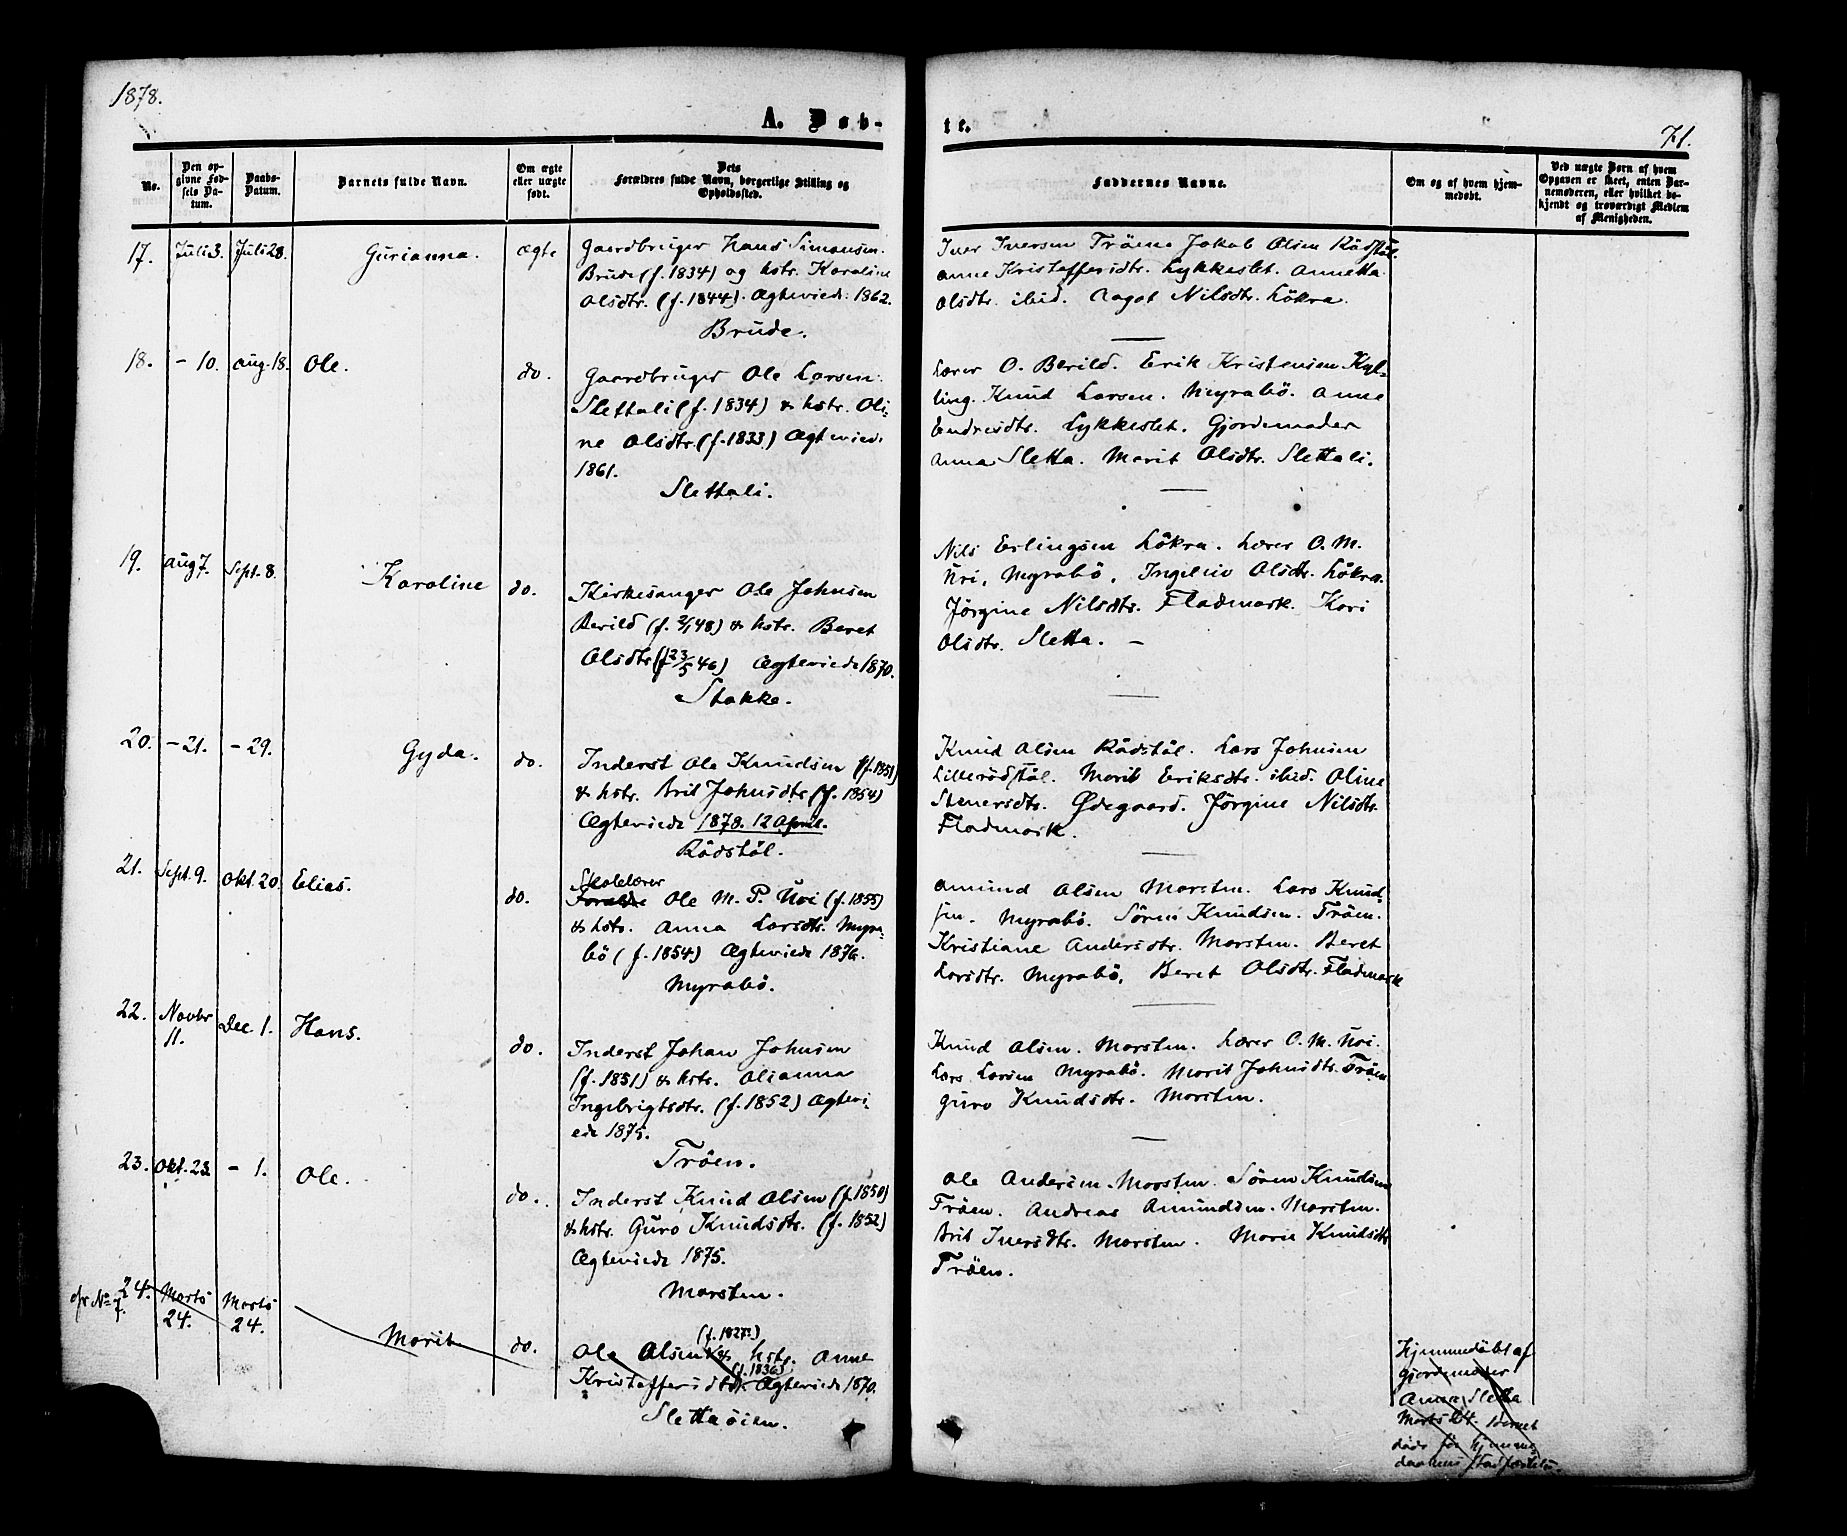 1878.
A. Døb-
te.
71.
No.
Den op-
givne Fød-
sels Da-
tum.
Daabs-
Datum.
Barnets fulde Navn.
Om ægte
eller uægte
født.
Dets
Forældres fulde Navn, borgerlige Stilling og
Opholdssted.
Faddernes Navne.
Om og af hvem hjem-
medøbt.
Ved uægte Børn af hvem
Opgaven er skeet, enten Bar-
nemoderen, eller hvilket be-
kjendt og troværdigt Medlem
af Menigheden.
17. Juli 3. Juli 28. Gurianna. ægte
Gaardbruger Hans Simonsen
Brude (f. 1834) og hstr. Karoline
Olsdtr. (f. 1844). Ægteviede: 1862.
Brude.
Iver Iversen Tröen Jakob Olsen Rödstöl.
Anne Kristoffersdtr. Lykkeslet. Annetta
Olsdtr. ibid. Ragot Nilsdtr. Lökra.
18. - 10. Aug. 18. Ole. do.
Gaardbruger Ole Larsen
Slettali (f. 1834) & hstr. Oli-
ne Olsdtr. (f. 1833) Ægteviede
1861.
Slettali.
Lærer O. Berild. Erik Kristensen Kyl-
ling. Knud Larsen. Myrabö. Anne
Endresdtr. Lykkeslet. Gjordemoder
Anna Sletta. Marit Olsdtr. Slettali.
19. Aug 7. Sept. 8. Karoline do.
Kirkesanger Ole Johnsen
Berild (f. 2/1 48) & hstr. Beret
Olsdtr (f. 23/5 46) Ægteviede 1870.
Stokke.
Nils Erlingsen Lökra. Lærer O. M.
Uri, Myrabö. Ingeliv Olsdtr. Lökra.
Jörgine Nilsdtr. Fladmark. Kari
Olsdtr. Sletta. -
20. - 21. - 29. Gyda. do.
Inderst Ole Knudsen (f. 1851)
& hstr. Brit Johnsdtr. (f. 1854)
Ægteviede 1878. 12 April.
Rödstöl.
Knud Olsen Rödstöl. Lars Johnsen
Lillerödstöl. Marit Eriksdtr. ibid. Oline
Stenersdtr. Ødegaard. Jörgine Nilsdtr.
Fladmark.
21. Sept. 9. Okt. 20. Elias. do.
Skolelærer
Ole M. P. Uri (f. 1855)
& hstr. Anna Larsdtr. Myra-
bö (f. 1854) Ægteviede 1876.
Myrabö.
Amund Olsen Marsten. Lars Knud-
sen. Myrabö. Sören Knudsen. Tröen.
Kristiane Andersdtr. Marsten. Beret
Larsdtr. Myrabö. Beret Olsdtr. Fladmark
22. Novbr
11. Dec. 1. Hans. do.
Inderst Johan Johnsen
(f. 1851) & hstr. Olianna
Ingebrigtsdtr. (f. 1852) Ægtevi-
ede 1875.
Tröen.
Knud Olsen. Marsten. Lærer O. M. Uri.
Lars Larsen Myrabö. Marit Johnsdtr. Tröen
Guro Knudsdtr. Marsten.
23. Okt. 23 - 1. Ole. do.
Inderst Knud Olsen (f. 1850)
& hstr. Guro Knudsdtr. (f. 1852)
Ægteviede 1875.
Marsten.
Ole Andersen. Marsten. Sören Knudsen
Tröen. Andreas Amundsen. Marsten.
Brit Iversdtr. Marsten. Marie Knudsdtr
Tröen.
cfr No 7. 24. Marts
24. Marts
24. Marit do.
(f. 1827)
Ole Olsen & hstr. Anne
(f. 1836)
Kristoffersdtr. Ægteviede 1870.
Slettaöien.
Hjemmedöbt af
Gjordemoder
Anna Sletta
Marts 24. Barnet
döde för Hjemme-
daabens Stadfæstelse.